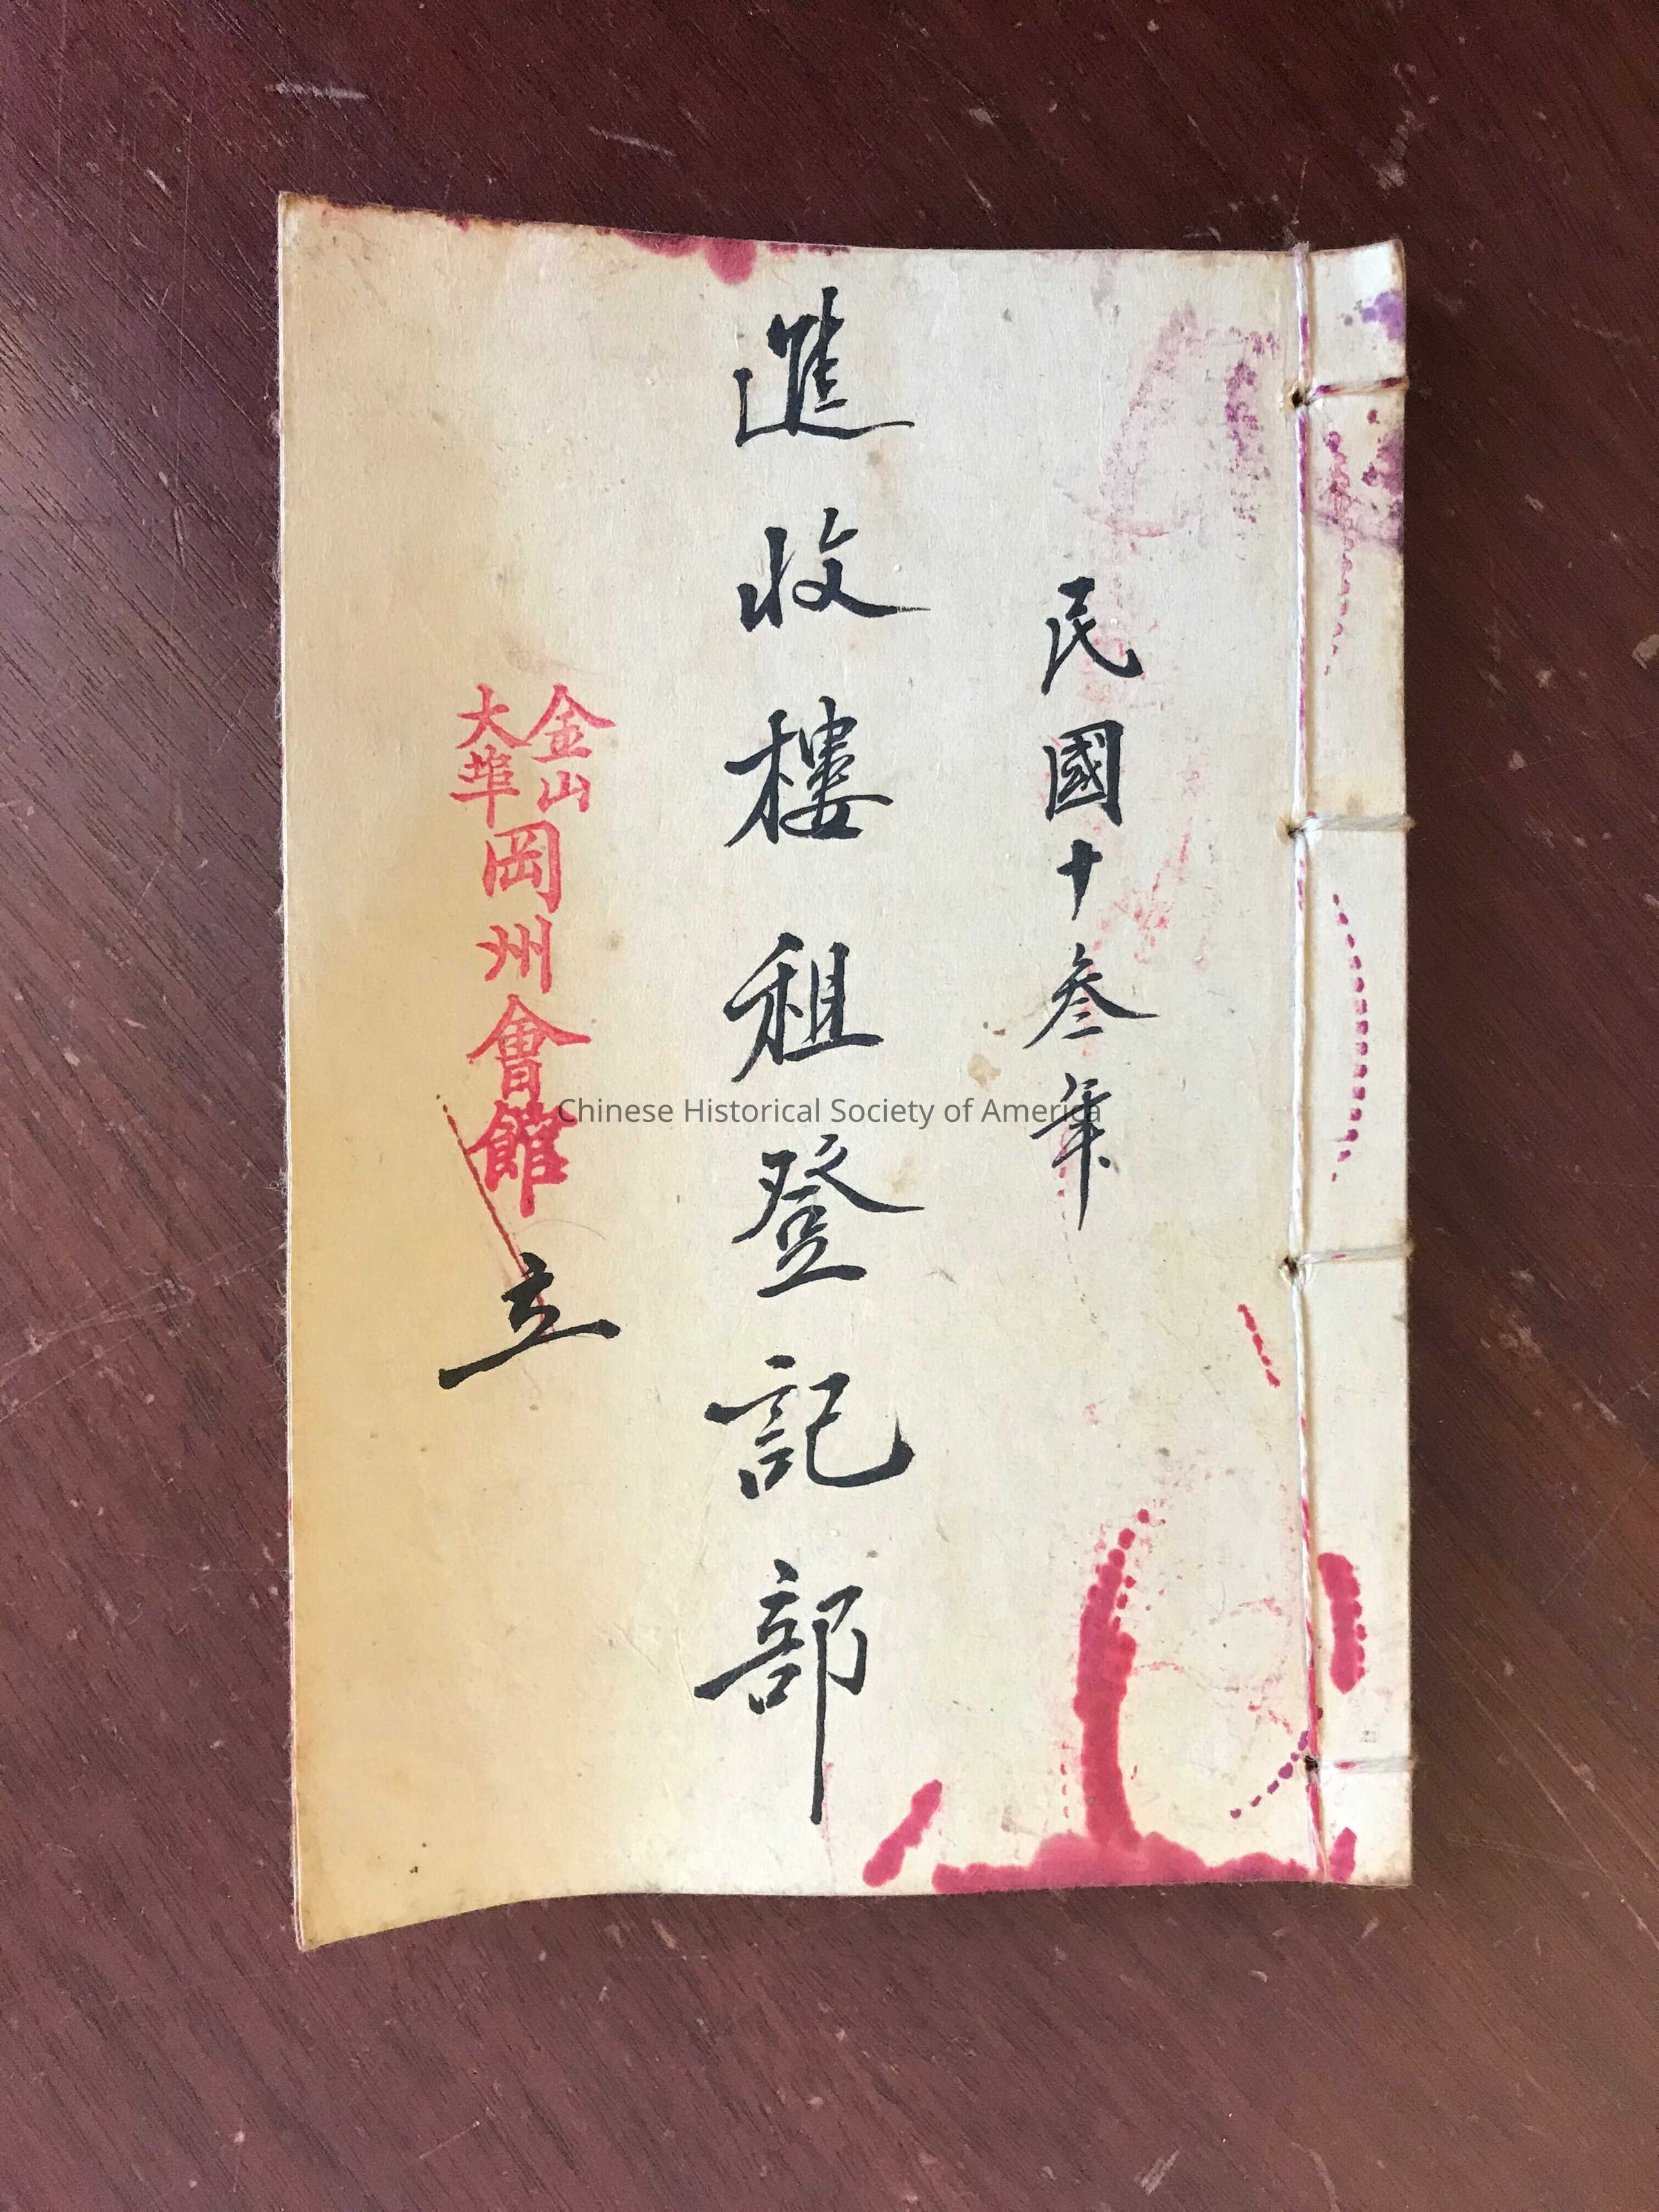 民國十叁年
進收樓租登記部
金山
大埠
岡州會館
立
Chinese Historical Society of America